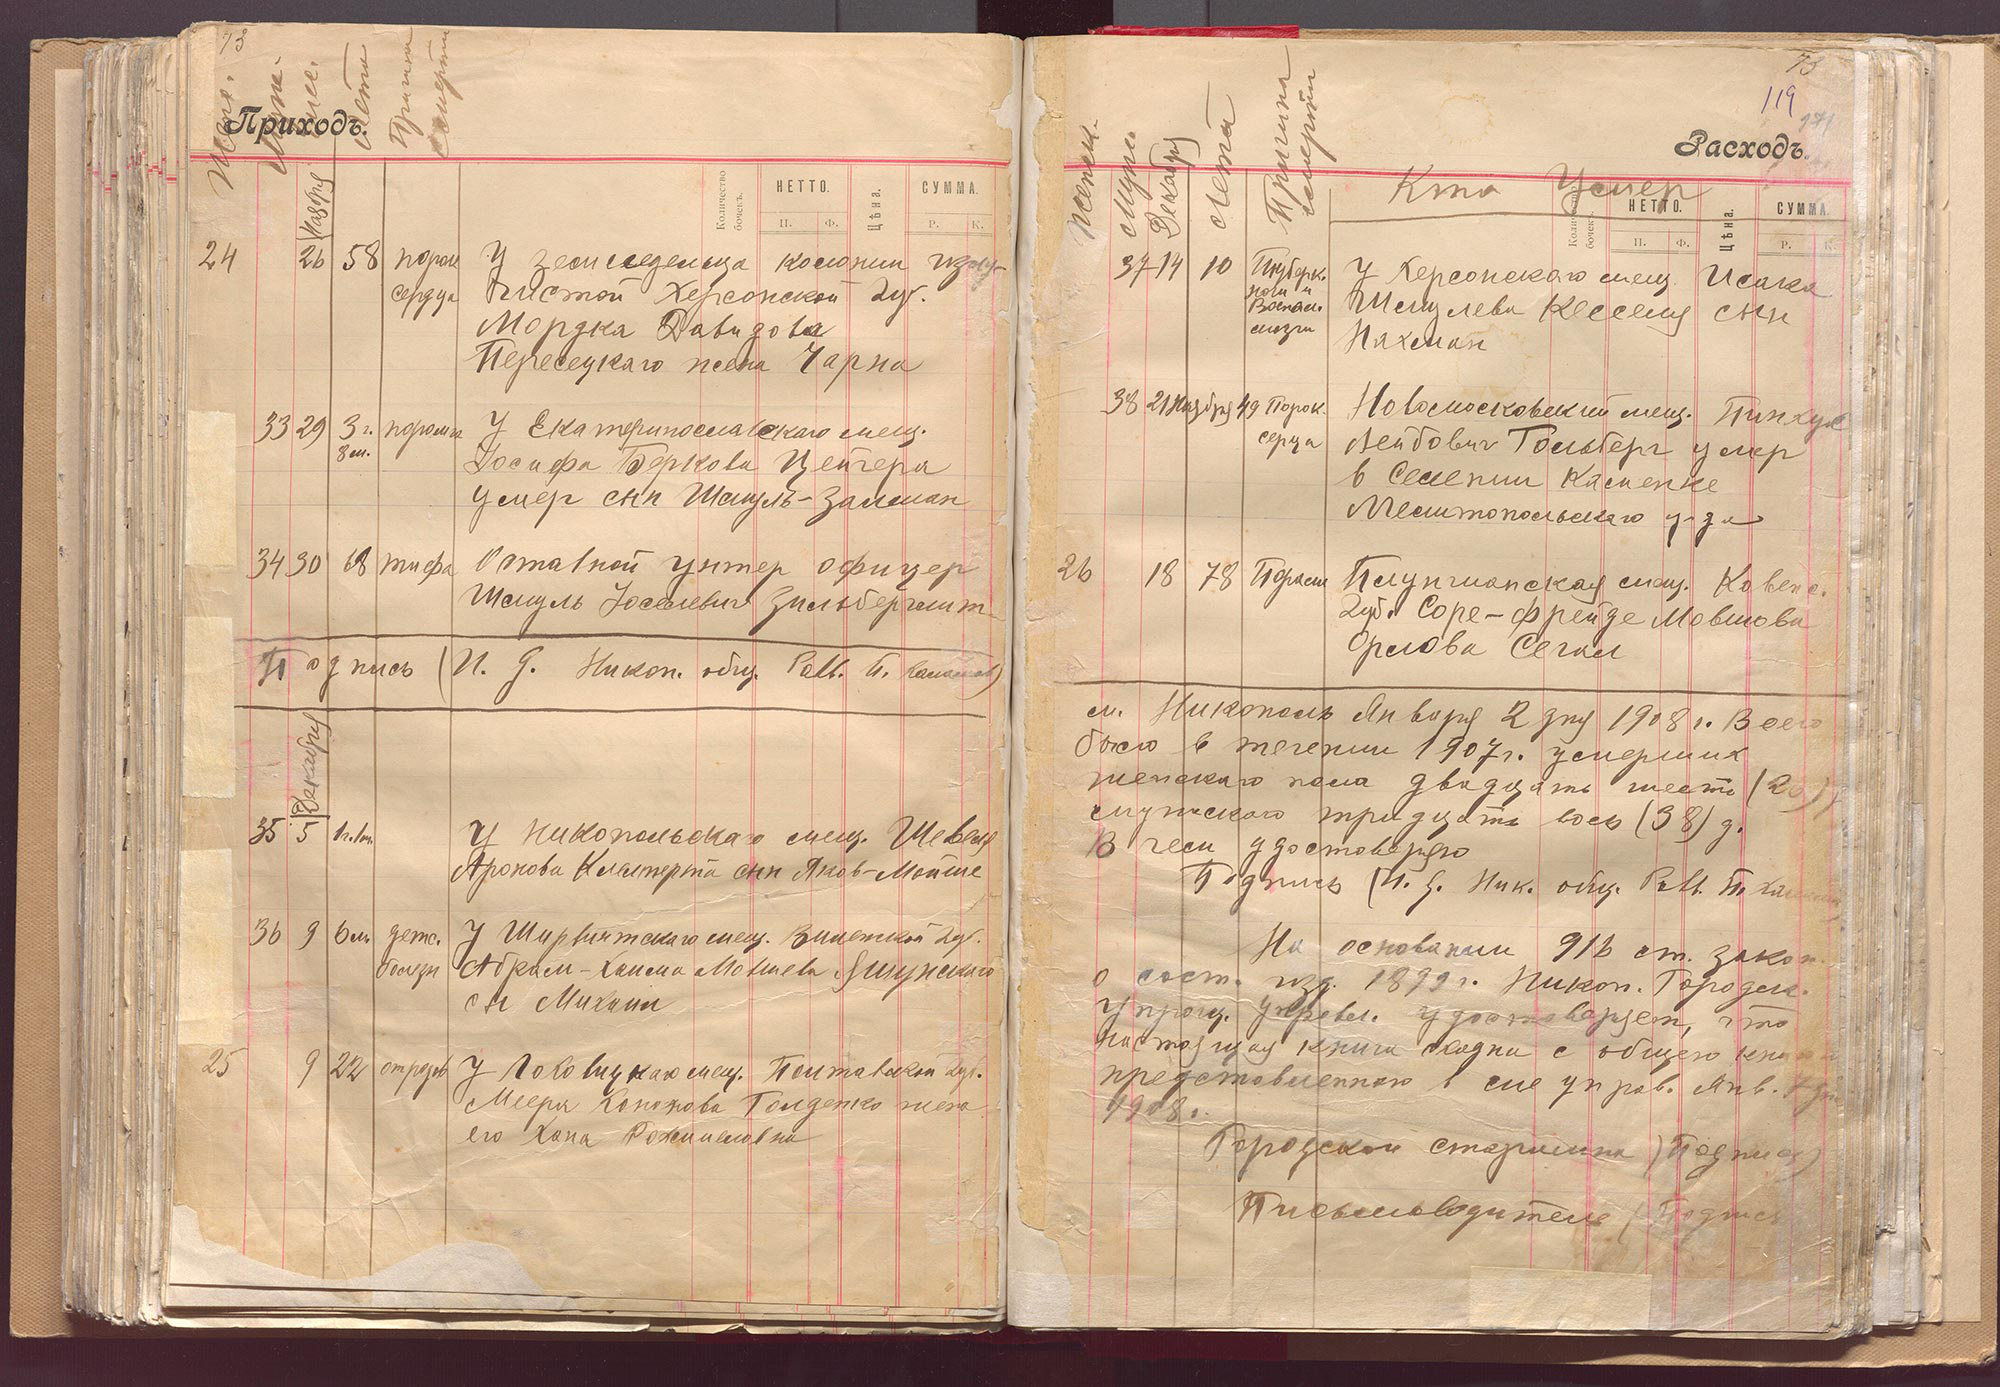 73
Приходъ.
Женс.
Мужс.
Лета
Причина
смерти
Количество бочекъ.
НЕТТО.
П. Ф.
Цѣна.
СУММА.
Р. К.
Ноября
24 26 58 порок У земледельца колонии
сердца Херсонской губ.
Мордка Давидова
Пересецкаго жена Чарна
33 29 3 г. У Екатеринославскаго мещ.
8 м. Иосифа Беркова Цейгера
умер сын Шмуль-Залман
34 30 68 тифа Отставной унтер офицер
Шмуль Иоселевич Зильберглит
Подпись (И. д. Никоп. общ. Равв. П.
Декабря
35 5 1 г. 1 м. У Никопольскаго мещ.
Аронова сын Яков-Мойше
36 9 6 м. детс. У Ширвинтскаго мещ. Виленской губ.
болезн Абрам-Хаима Мовшева
сн Михаил
25 9 22 У мещ. Полтавской губ.
Меера жена
его Хана
73
119
171
Расходъ.
Женск.
Мужс.
Декабря
Лета
Причина
смерти
Кто Умер
Количество бочекъ.
НЕТТО.
П. Ф.
Цѣна.
СУММА.
Р. К.
37 14 10 У Херсонскаго мещ. Исака
Шмулева Кеселя сын
мозги Нахман
38 21 Ноября 49 Порок. Новомосковский мещ. Пинхус
серца Лейбович Гольберг умер
в Селении Каменке
Мелитопольскаго у-да
26 18 78 мещ. Ковенс.
губ. Соре-Фрейде Мовшова
Орлова Сегал
м. Никополь Января 2 дня 1908 г. Всего
было в течении 1907 г. умерших
женскаго пола двадцать шесть (26)
мужскаго тридцать вось (38) д.
В чем удостоверяю
Подпись (И. д. Ник. общ. Равв. П.
На основании 916 ст. закон.
о сост. изд. 1899 г. Никоп. Городск.
Упрощ. Управл. удостоверяет, что
настоящая книга сходна с общего книги
представленною в сие управ. Янв. 7 дня
1908 г.
Городской старшина (Подпись)
Письмоводитель (Подпись